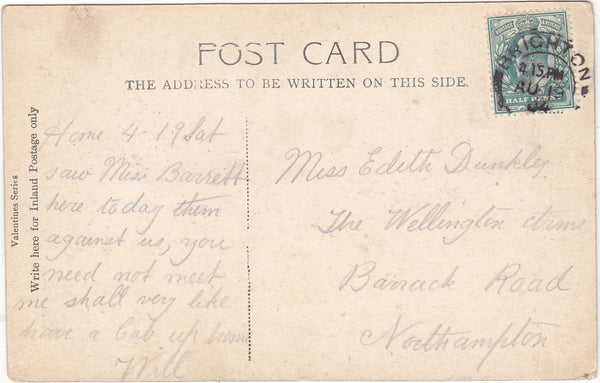 POST CARD
THE ADDRESS TO BE WRITTEN ON THIS SIDE.
Valentines Series
Write here for Inland Postage only
Home 4-19 Sat
saw Miss Barrett
here today them
against us, you
need not meet
me shall very like
have a Cab up home
Will
Miss Edith Dunkley
The Wellington Arms
Barrack Road
Northampton
POSTAGE REVENUE
HALF PENNY
BRIGHTON
4.15 PM
AU 13
04